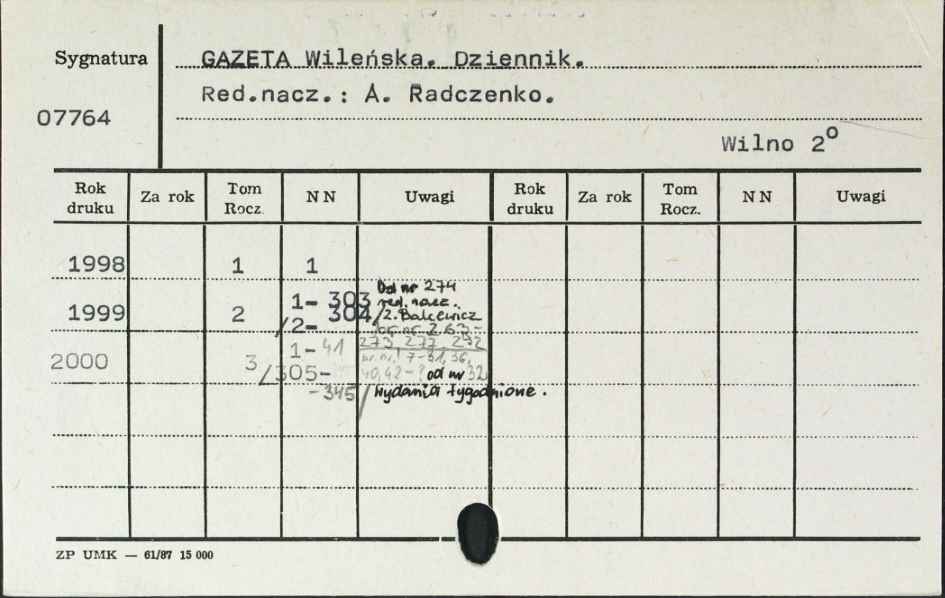 Sygnatura
GAZETA Wileńska. Dziennik.
Red.nacz.: A. Radczenko.
07764
Wilno 2°
Rok druku Za rok Tom Rocz. NN Uwagi Rok druku Za rok Tom Rocz. NN Uwagi
1998 1 1
Od nr 274
1- 303 red. nacz.
1999 2 304/Z. Balcewicz
/2- nr 263-
1-41 273, 277, 292
2000 3 nr. nr. 7-31, 36,
/305- 40,42-? od nr 32
-345/ wydania tygodniowe.
ZP UMK — 61/87 15 000